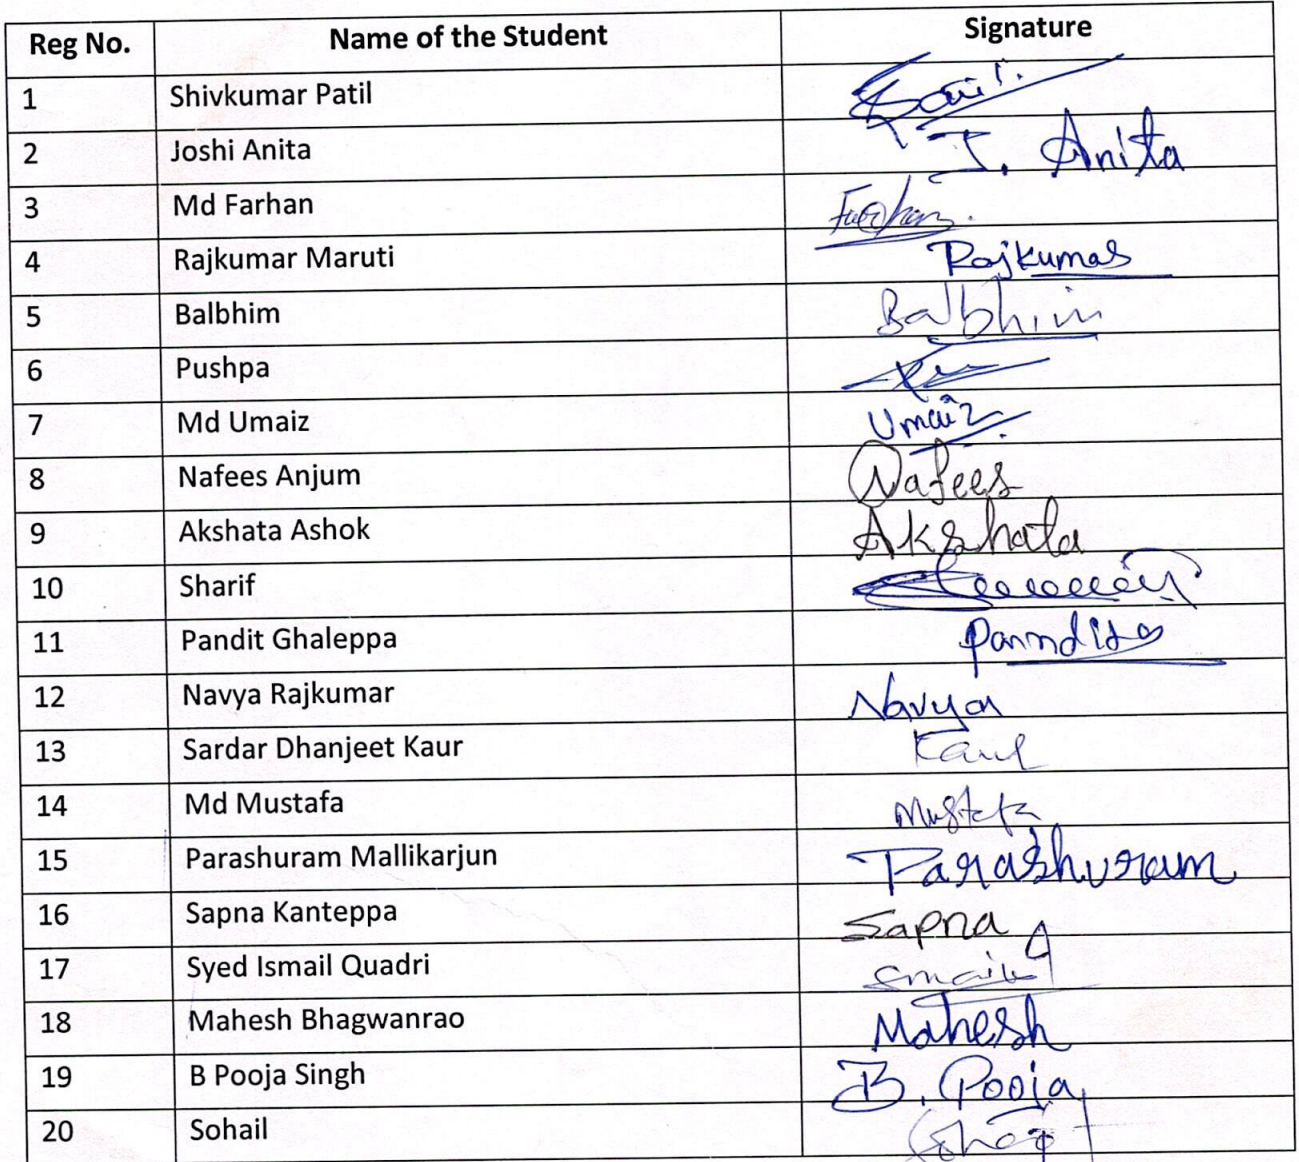 Reg No. Name of the Student Signature
1 Shivkumar Patil
2 Joshi Anita J. Anita
3 Md Farhan Farhan
4 Rajkumar Maruti Rajkumar
5 Balbhim Balbhim
6 Pushpa
7 Md Umaiz Umaiz
8 Nafees Anjum Nafees
9 Akshata Ashok Akshata
10 Sharif
11 Pandit Ghaleppa Panndit
12 Navya Rajkumar Navya
13 Sardar Dhanjeet Kaur Kaur
14 Md Mustafa Mustafa
15 Parashuram Mallikarjun Parashuram
16 Sapna Kanteppa Sapna
17 Syed Ismail Quadri
18 Mahesh Bhagwanrao Mahesh
19 B Pooja Singh B. Pooja
20 Sohail